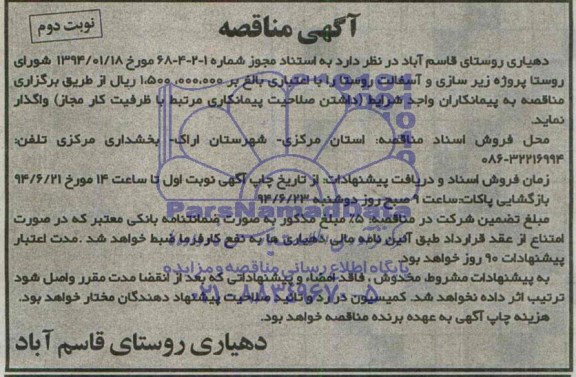 آگهی مناقصه
نوبت دوم
دهیاری روستای قاسم آباد در نظر دارد به استناد مجوز شماره ۱-۲-۴-۶۸ مورخ ۱۳۹۴/۰۱/۱۸ شورای
روستا پروژه زیر سازی و آسفالت روستا را با اعتباری بالغ بر ۱،۵۰۰،۰۰۰،۰۰۰ ریال از طریق برگزاری
مناقصه به پیمانکاران واجد شرایط (داشتن صلاحیت پیمانکاری مرتبط با ظرفیت کار مجاز) واگذار
نماید.
محل فروش اسناد مناقصه: استان مرکزی- شهرستان اراک- بخشداری مرکزی تلفن:
۰۸۶-۳۲۲۱۶۹۹۴
زمان فروش اسناد و دریافت پیشنهادات: از تاریخ چاپ آگهی نوبت اول تا ساعت ۱۴ مورخ ۹۴/۶/۲۱
بازگشایی پاکات: ساعت ۹ صبح روز دوشنبه ۹۴/۶/۲۳
مبلغ تضمین شرکت در مناقصه: ۵٪ مبلغ مذکور به صورت ضمانتنامه بانکی معتبر که در صورت
امتناع از عقد قرارداد طبق آئین نامه مالی دهیاری ها به نفع کارفرما ضبط خواهد شد .مدت اعتبار
پیشنهادات ۹۰ روز خواهد بود.
به پیشنهادات مشروط، مخدوش ، فاقد امضاء و پیشنهاداتی که بعد از انقضا مدت مقرر واصل شود
ترتیب اثر داده نخواهد شد. کمیسیون در رد و تائید صلاحیت پیشنهاد دهندگان مختار خواهد بود.
هزینه چاپ آگهی به عهده برنده مناقصه خواهد بود.
دهیاری روستای قاسم آباد
ParsNamadData
پایگاه اطلاع رسانی مناقصه و مزایده
۰۲۱-۸۸۳۴۹۶۷۰-۵